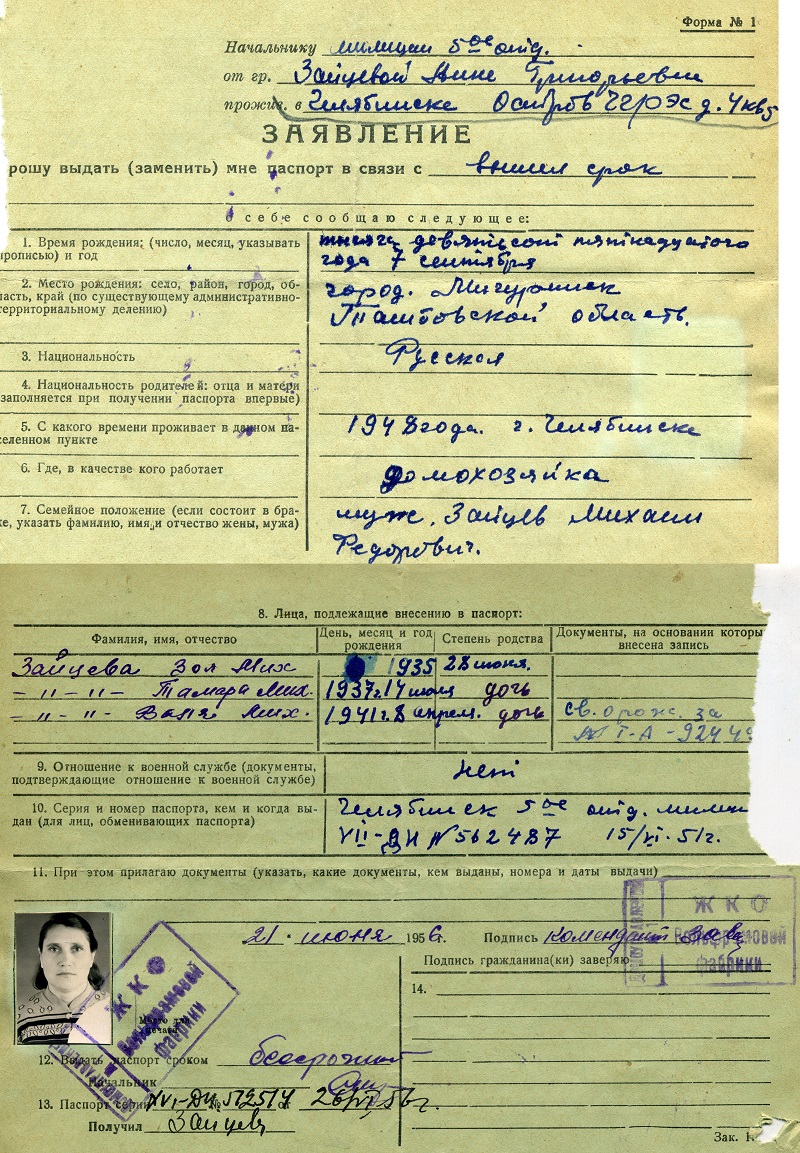 Форма № 1
Начальнику милиции 5ое отд.
от гр. Зайцевой Анне Григорьевне
прожив. в Челябинске Остров ЧГРЭС д. 4 кв 5
ЗАЯВЛЕНИЕ
рошу выдать (заменить) мне паспорт в связи с вышел срок
о себе сообщаю следующее:
1. Время рождения: (число, месяц, указывать
прописью) и год
тысяча девятьсот пятнадцатого
года 7 сентября
2. Место рождения: село, район, город, об-
ласть, край (по существующему административно-
территориальному делению)
город. Мичуринск
Тамбовской область.
3. Национальность Русская
4. Национальность родителей: отца и матери
заполняется при получении паспорта впервые)
5. С какого времени проживает в данном на-
селенном пункте
1948 года. г. Челябинске
6. Где, в качестве кого работает домохозяйка
7. Семейное положение (если состоит в бра-
ке, указать фамилию, имя и отчество жены, мужа)
муж. Зайцев Михаил
Федорович.
8. Лица, подлежащие внесению в паспорт:
Фамилия, имя, отчество День, месяц и год рождения Степень родства Документы, на основании которы внесена запись
Зайцева Зоя Мих 1935 28 июня.
– " – " – Тамара Мих. 1937 г. 14 июля дочь
– " – " – Мих. 1941 г. 8 апрел. дочь св. о рож. за
I-А - 92449
9. Отношение к военной службе (документы,
подтверждающие отношение к военной службе)
нет
10. Серия и номер паспорта, кем и когда вы-
дан (для лиц, обменивающих паспорта)
Челябинск 5ое отд. милиц
VII- N 562487 15/VI-51г.
11. При этом прилагаю документы (указать, какие документы, кем выданы, номера и даты выдачи)
21 · июня 1956г. Подпись комендант
Подпись гражданина(ки) заверяю
ЖКО
Вольфрамовой
фабрики
14.
ЖКО
Вольфрамовой
фабрики
Место для
печати
12. Выдать паспорт сроком бессрочный
Начальник
13. Паспорт серии XVI-ДИ № 512514 от 26/VI, 56 г.
Получил Зайцев
Зак. 1